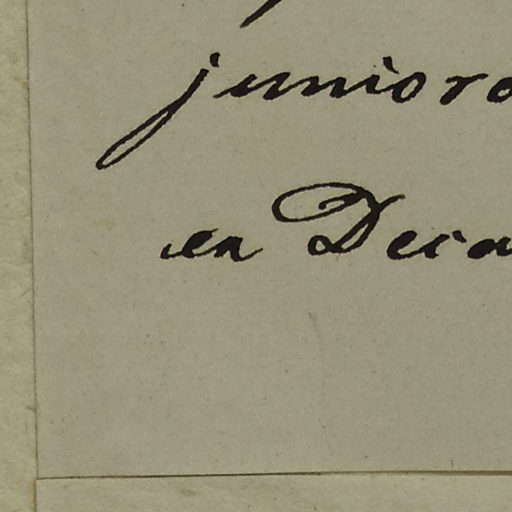 juniora
en Deca